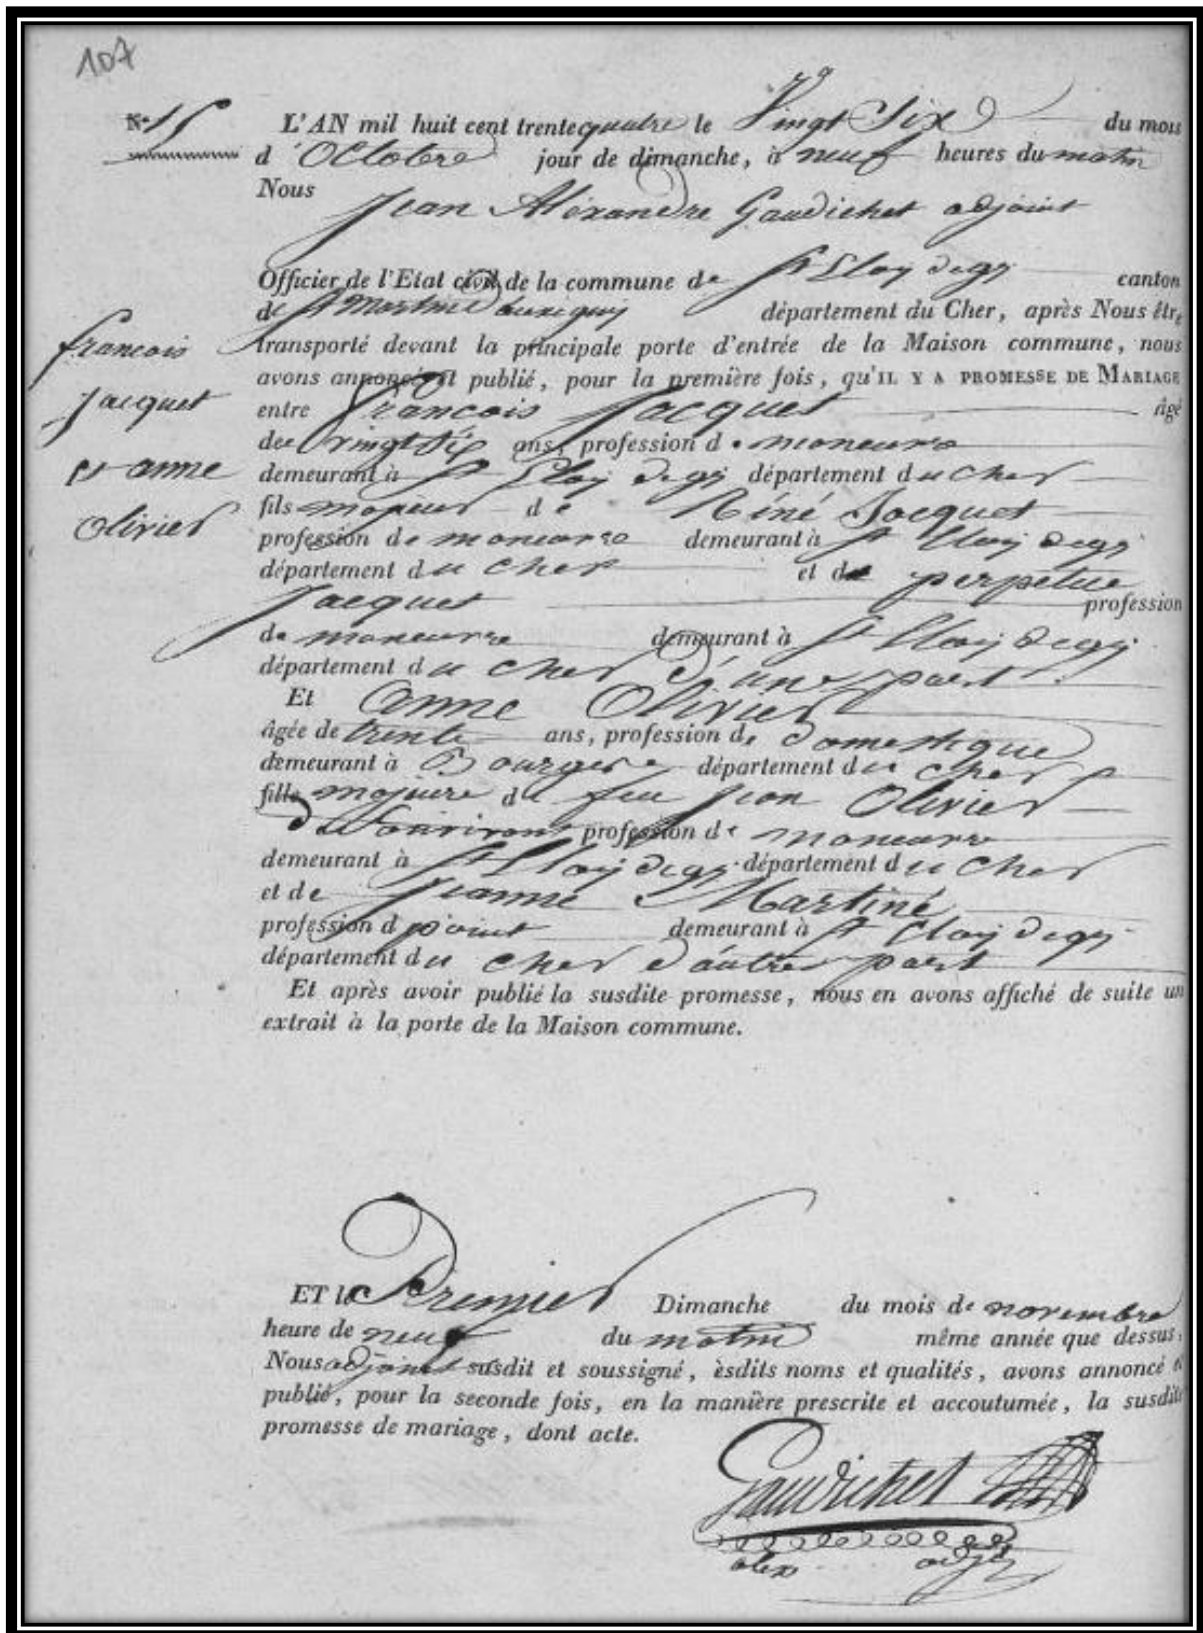 107
N.° 15
L'AN mil huit cent trente quatre le Vingt Six du mois
d'Octobre jour de dimanche, à neuf heures du matin
Nous
Jean Aléxandre Gaudichet adjoint
Officier de l'Etat civil de la commune de St Eloy degy canton
de St Martin dauxiguy département du Cher, après Nous être
transporté devant la principale porte d'entrée de la Maison commune, nous
avons annoncé et publié, pour la première fois, qu'IL Y A PROMESSE DE MARIAGE
francois
Jacquet
et anne
Olivier
entre françois Jacquet âgé
de vingt six ans, profession de maneuvre
demeurant à St Eloy degy département du cher
fils majeur de Réné Jacquet
profession de maneuvre demeurant à St Eloy degy
département du cher et de perpetue
Jacquet profession
de maneuvre demeurant à St Eloy degy
département du cher d'une part.
Et Anne Olivier
âgée de trente ans, profession de domestique
demeurant à Bourges département du cher
fille majeure de feu Jean Olivier
de son vivant profession de maneuvre
demeurant à St Eloy degy département du cher
et de Jeanne Martiné
profession d point demeurant à St Eloy degy
département du cher d'autre part
Et après avoir publié la susdite promesse, nous en avons affiché de suite un
extrait à la porte de la Maison commune.
ET le Premier Dimanche du mois de novembre
heure de neuf du matin même année que dessus,
Nous adjoint susdit et soussigné, èsdits noms et qualités, avons annoncé et
publié, pour la seconde fois, en la manière prescrite et accoutumée, la susdite
promesse de mariage, dont acte.
Gaudichet
alex adjt